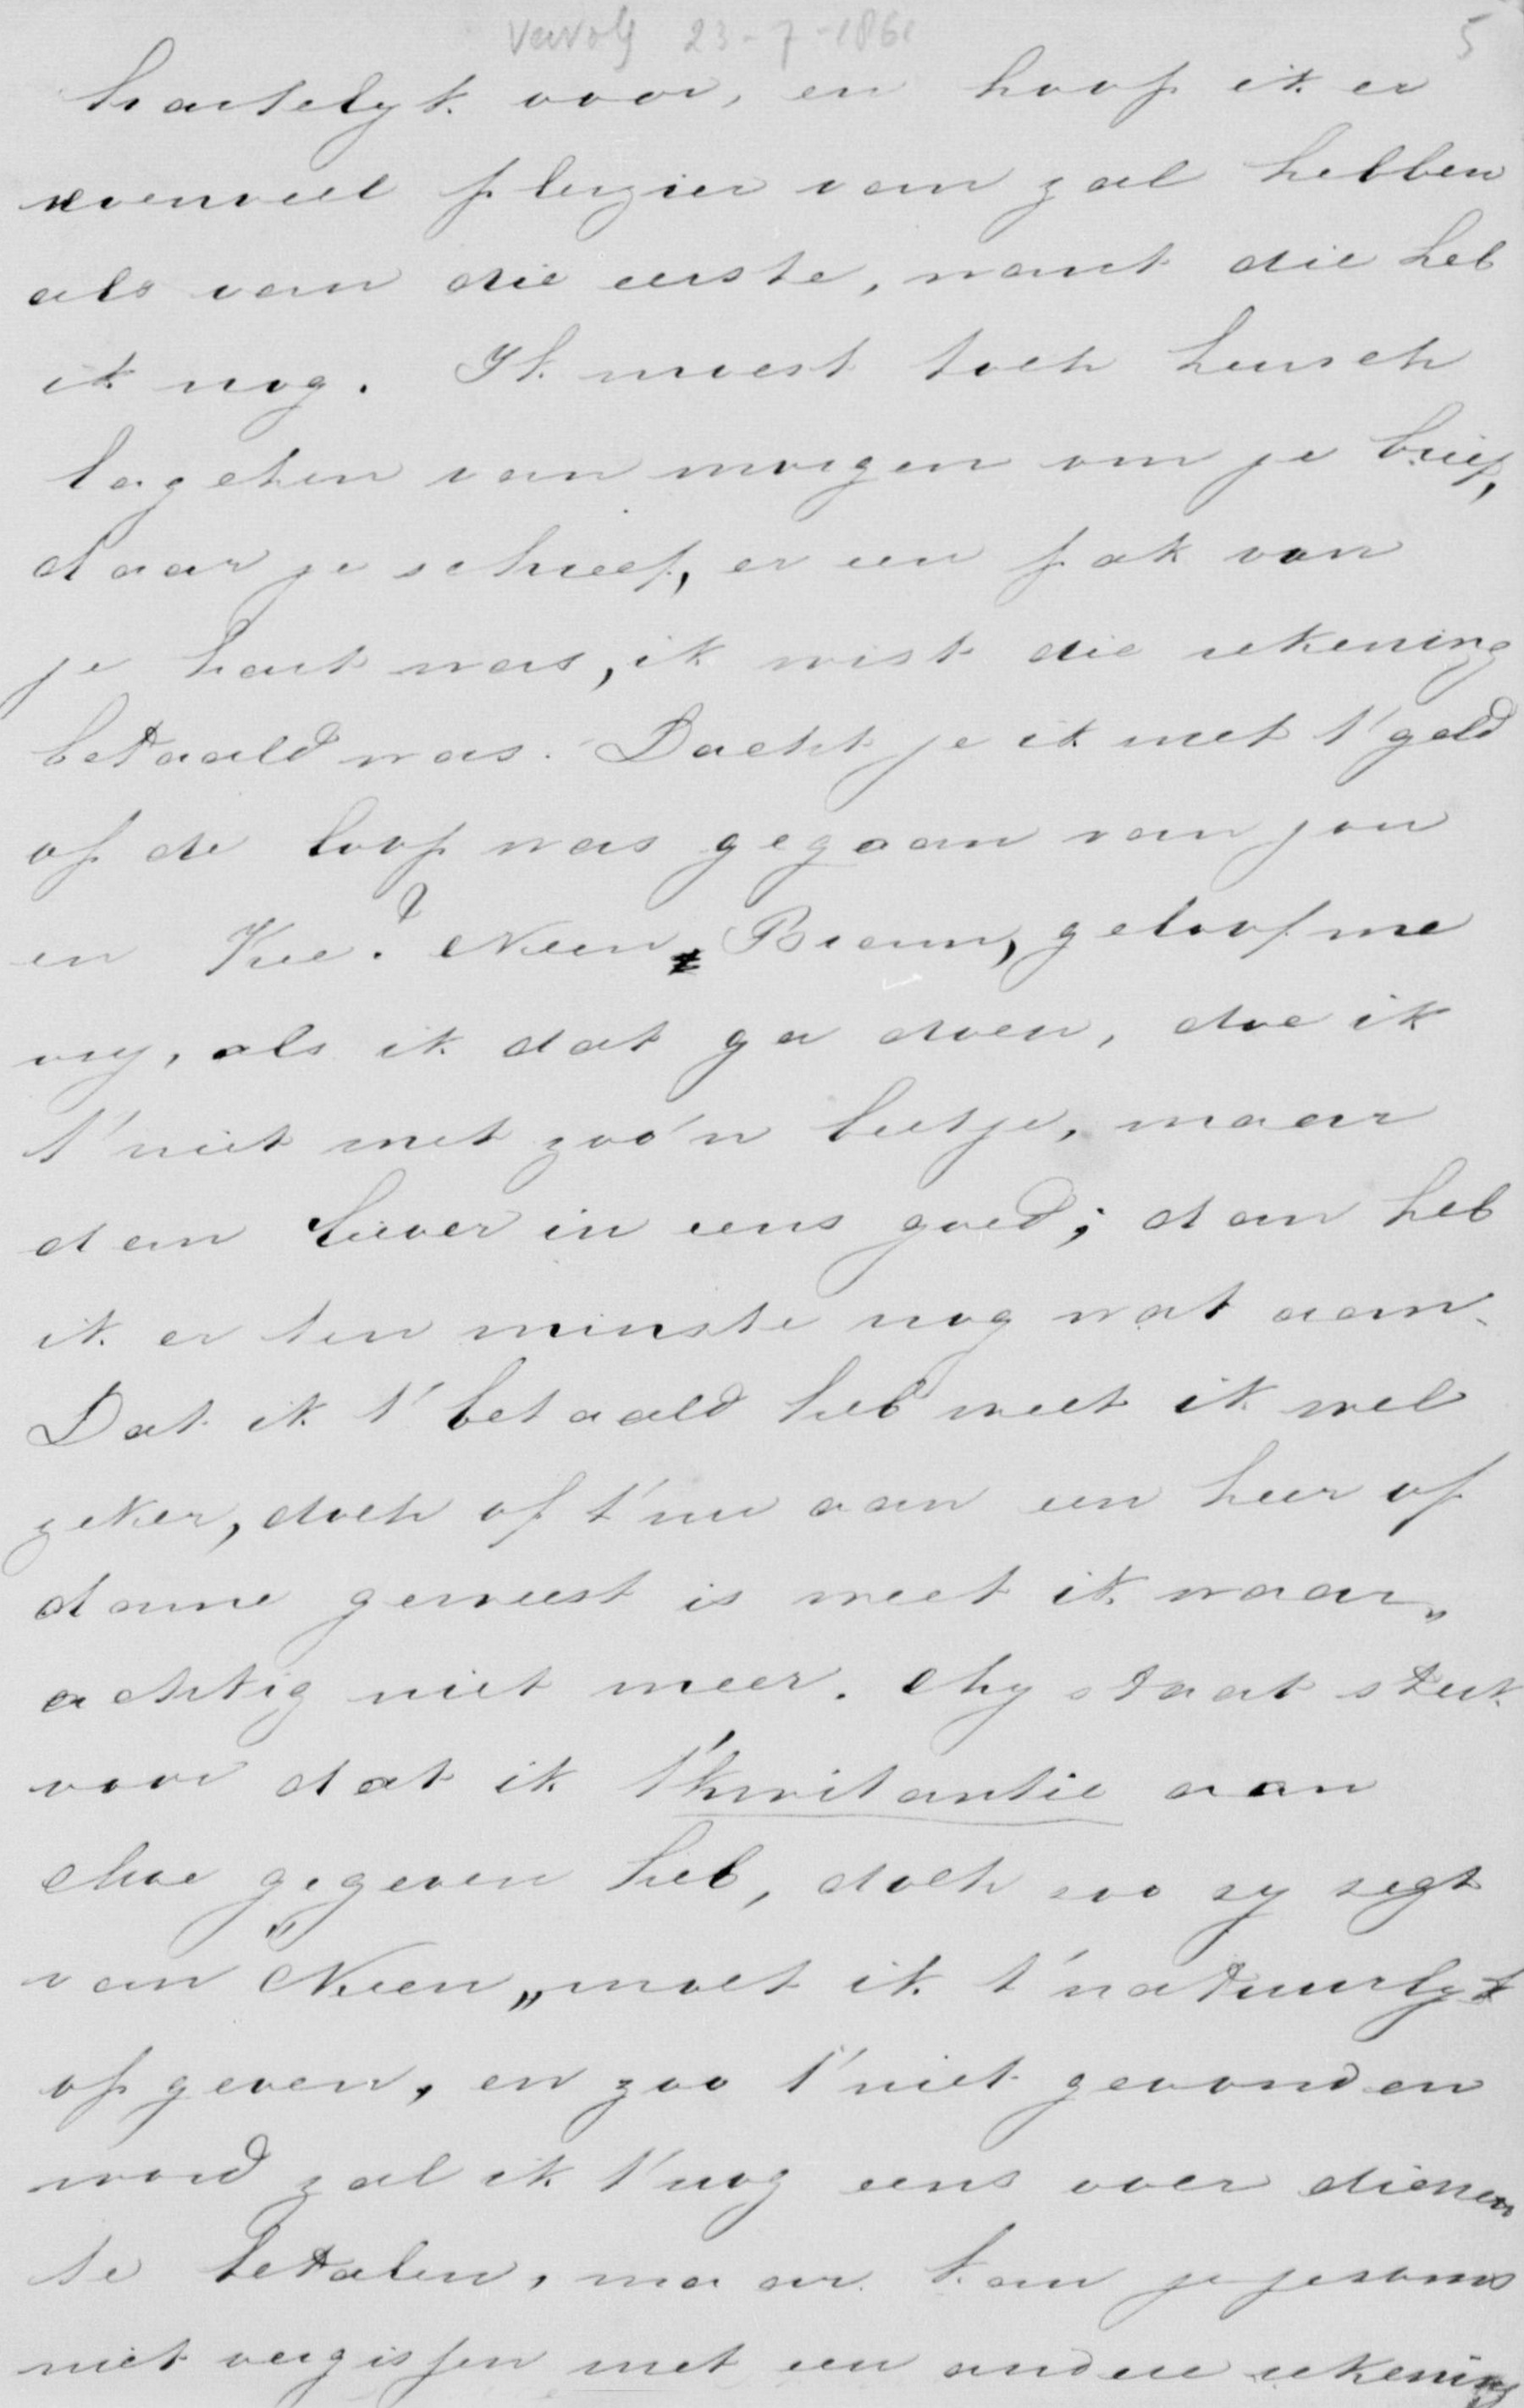 Vervolg 23-7-1861 5
hartelyk voor, en hoop ik er
evenveel plezier van zal hebben
als van die eerste, want die heb
ik nog. Ik moest toch heusch
lagchen van morgen om je brief,
daar je schreef, er een pak van
je hart was, ik wist die rekening
betaald was. Dacht je ik met t'geld
op de loop was gegaan van jou
en Kee? Neen Bram, geloof me
vry, als ik dat ga doen, doe ik
t'niet met zoo'n beetje, maar
dan liever in eens goed; dan heb
ik er ten minste nog wat aan.
Dat ik t'betaald heb weet ik wel
zeker, doch of t'nu aan een heer of
dame geweest is weet ik waar„
achtig niet meer. My staat sterk
voor dat ik t'kwitantie aan
Moe gegeven heb, doch zoo zy zegt
van "Neen„ moet ik t'natuurlyk
op geven, en zoo t'niet gevonden
word zal ik t'nog eens over dienen
te betalen, maar kan je je soms
niet vergissen met een andere rekening